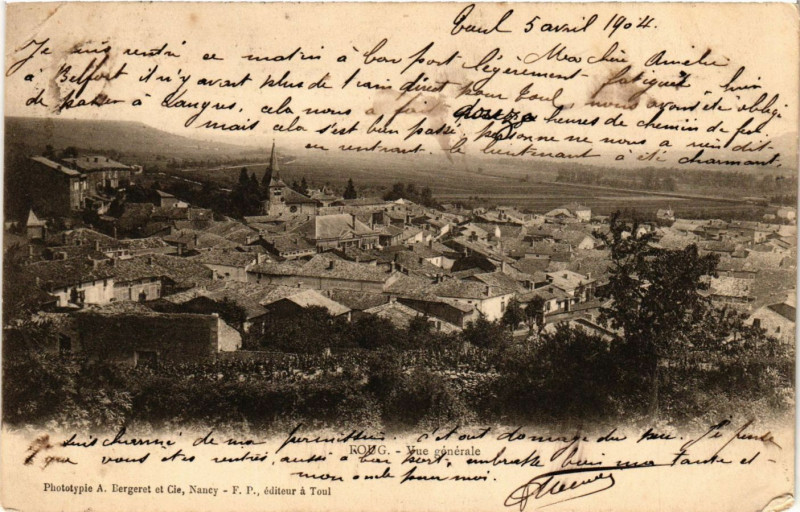 Toul 5 avril 1904.
Ma chère Amélie
Je suis rentré ce matin à bon port légèrement fatigué, hier
à Belfort il n'y avait plus de train direct pour Toul, nous avons été obligé
de passer à Langres, cela nous a fait heures de chemin de fer
mais cela s'est bien passé, personne ne nous a rien dit
en rentrant. le lieutenant a été charmant.
suis charmé de ma permission. c'était dommage du peu. Je pense
que vous êtes rentrés aussi à bon port, embrasse bien ma tante et
mon oncle pour moi.
FOUG. - Vue générale
Phototypie A. Bergeret et Cie, Nancy - F. P., éditeur à Toul